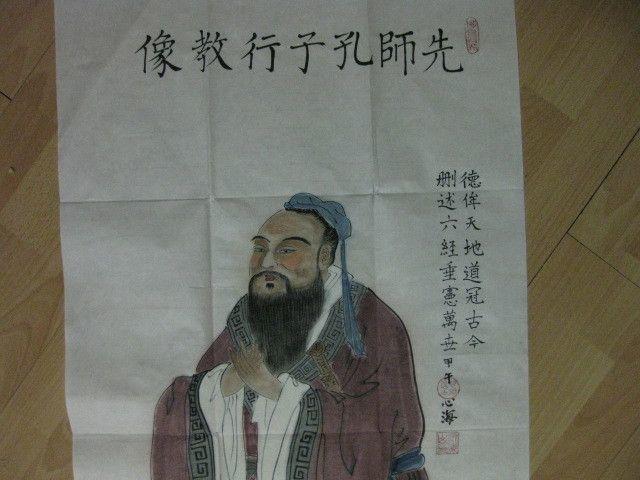 先師孔子行教像
德侔天地道冠古今
删述六經垂憲萬世甲午心海